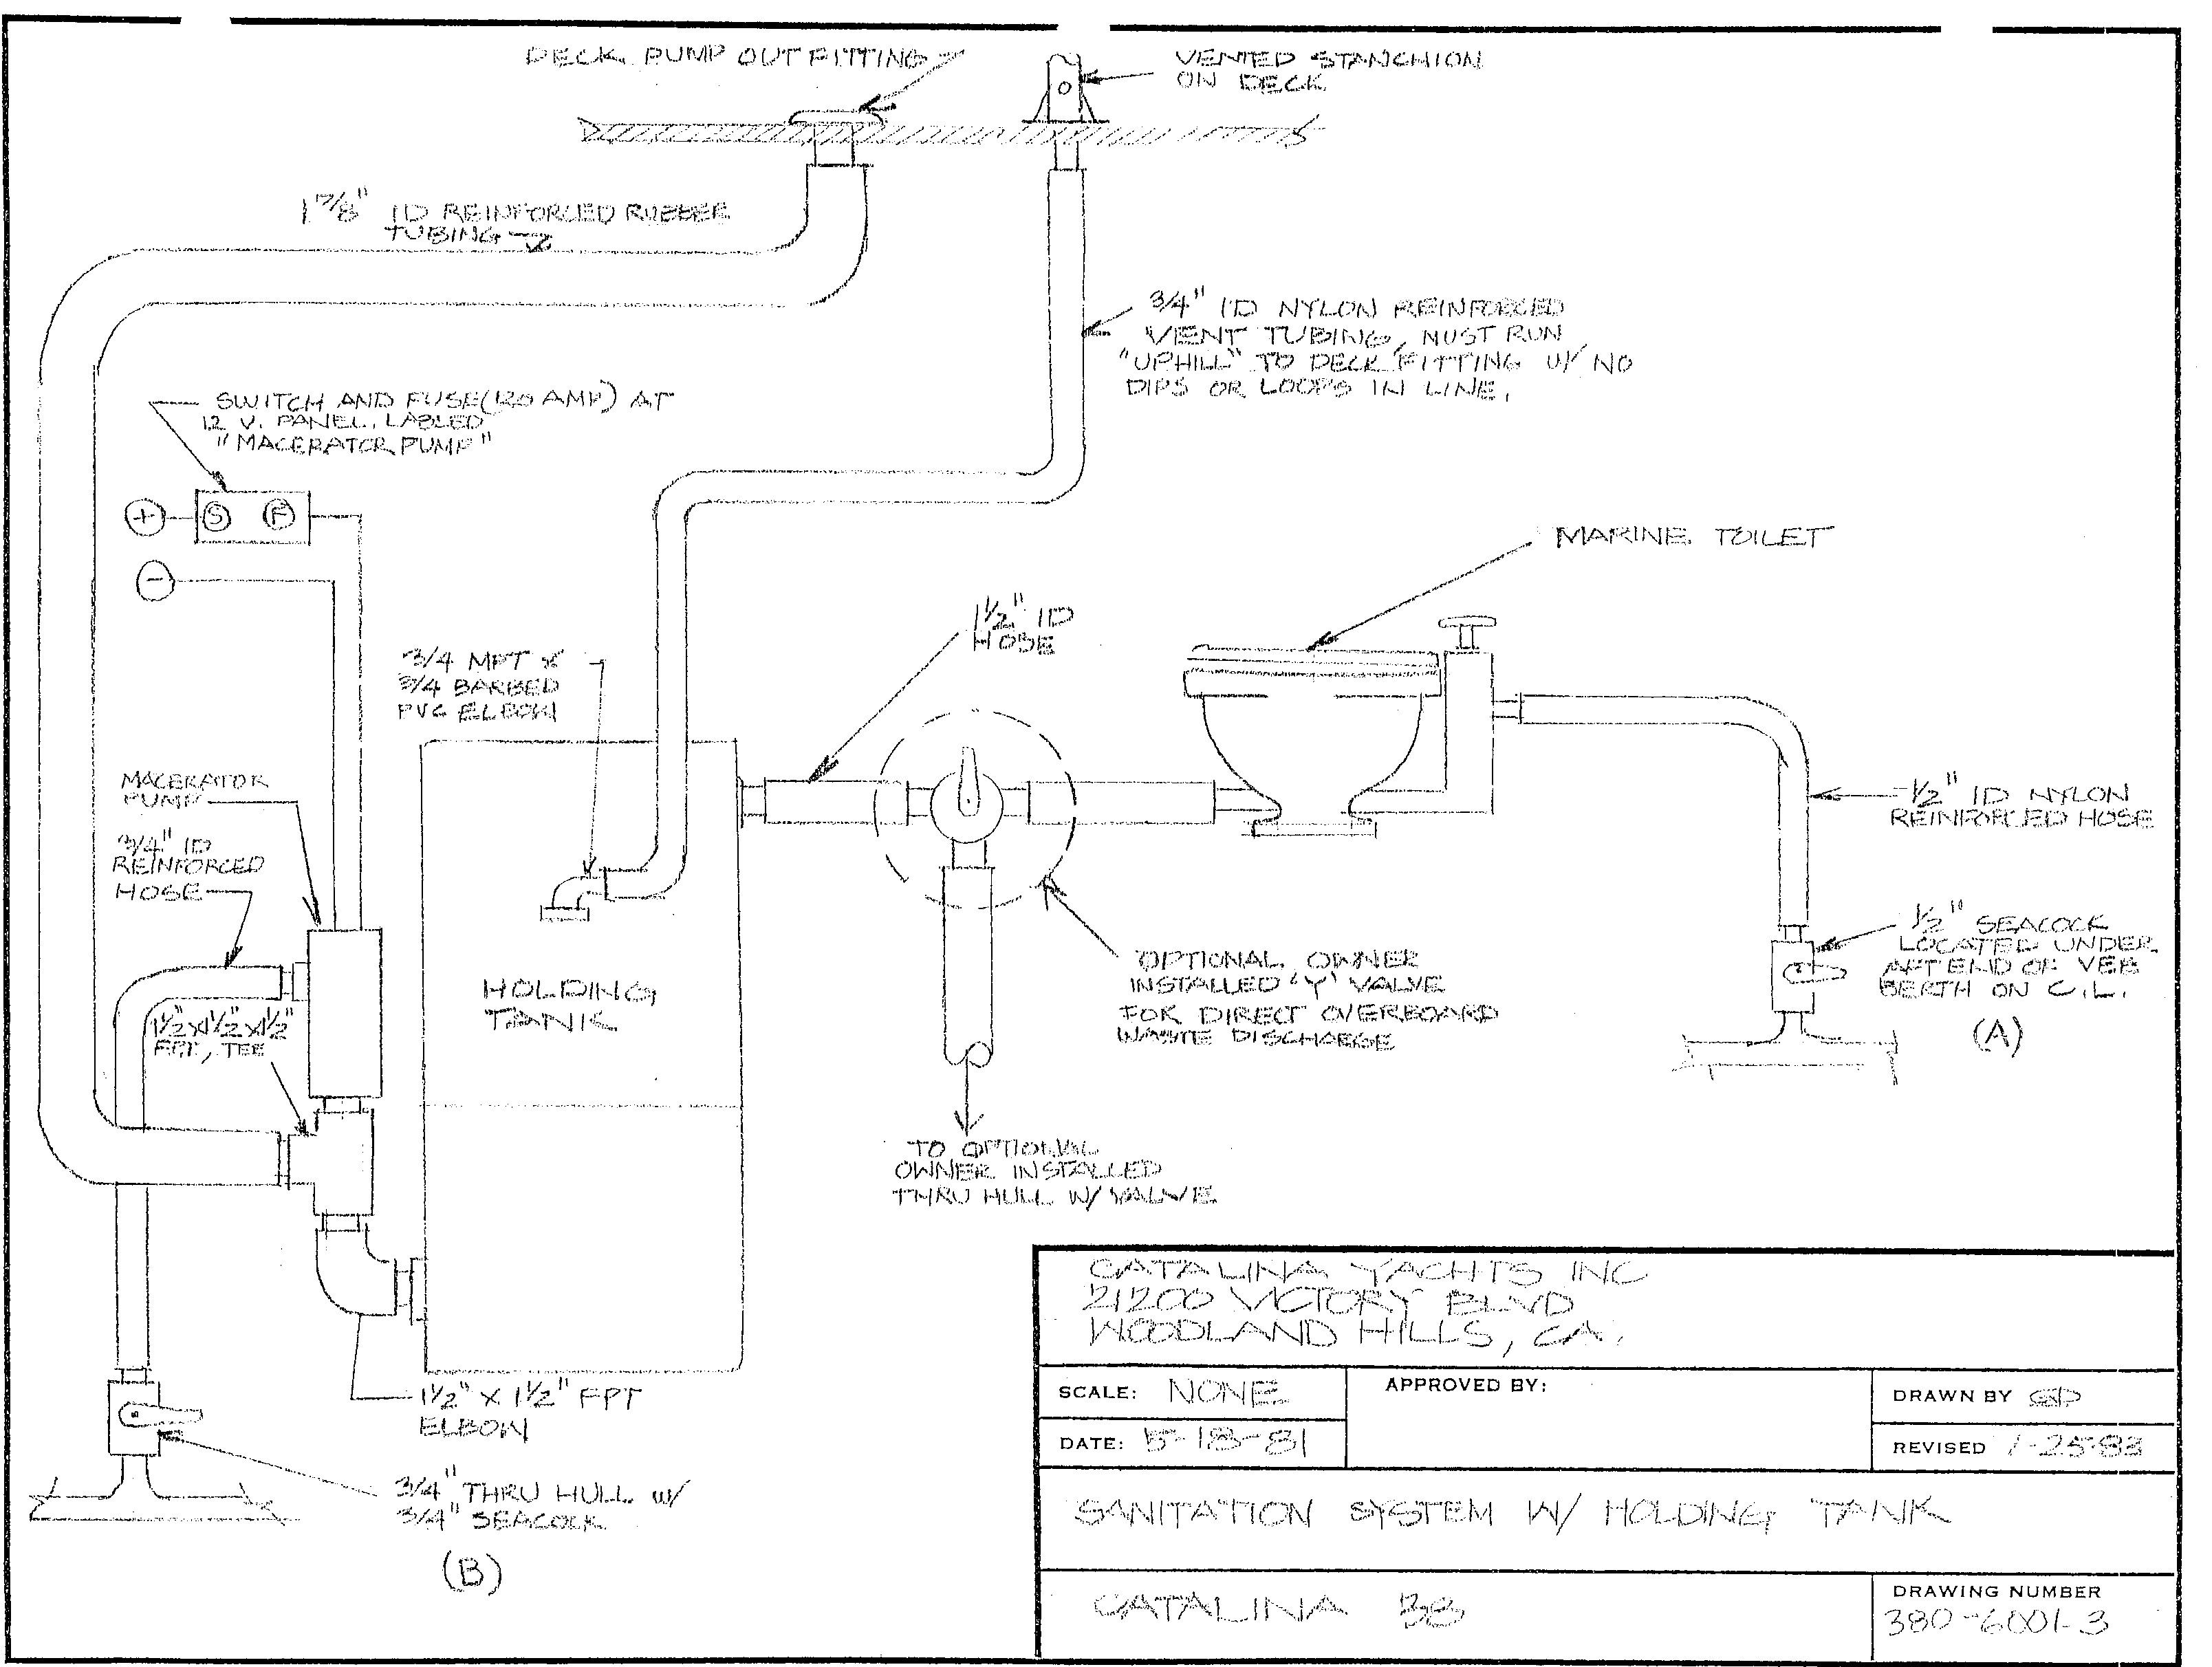 DECK PUMP OUT FITTING
VENTED STANCHION
ON DECK
1 7/8" ID REINFORCED RUBBER
TUBING
3/4" ID NYLON REINFORCED
VENT TUBING, MUST RUN
"UPHILL" TO DECK FITTING W/ NO
DIPS OR LOOPS IN LINE.
SWITCH AND FUSE (20 AMP) AT
12 V. PANEL, LABLED
"MACERATOR PUMP"
+ S F
-
MARINE TOILET
1 1/2" ID
HOSE
3/4 MPT x
3/4 BARBED
PVC ELBOW
MACERATOR
PUMP
3/4" ID
REINFORCED
HOSE
1/2" ID NYLON
REINFORCED HOSE
1/2" SEACOCK
LOCATED UNDER
AFT END OF VEE
BERTH ON C.L.
(A)
HOLDING
TANK
OPTIONAL OWNER
INSTALLED 'Y' VALVE
FOR DIRECT OVERBOARD
WASTE DISCHARGE
1 1/2"x1 1/2"x1 1/2"
FPT, TEE
TO OPTIONAL
OWNER INSTALLED
THRU HULL W/ VALVE
1 1/2" X 1 1/2" FPT
ELBOW
3/4" THRU HULL W/
3/4" SEACOCK
(B)
CATALINA YACHTS INC
21200 VICTORY BLVD
WOODLAND HILLS, CA.
SCALE: NONE
APPROVED BY:
DRAWN BY GD
DATE: 5-18-81
REVISED 1-25-83
SANITATION SYSTEM W/ HOLDING TANK
CATALINA 38
DRAWING NUMBER
380-6001-3